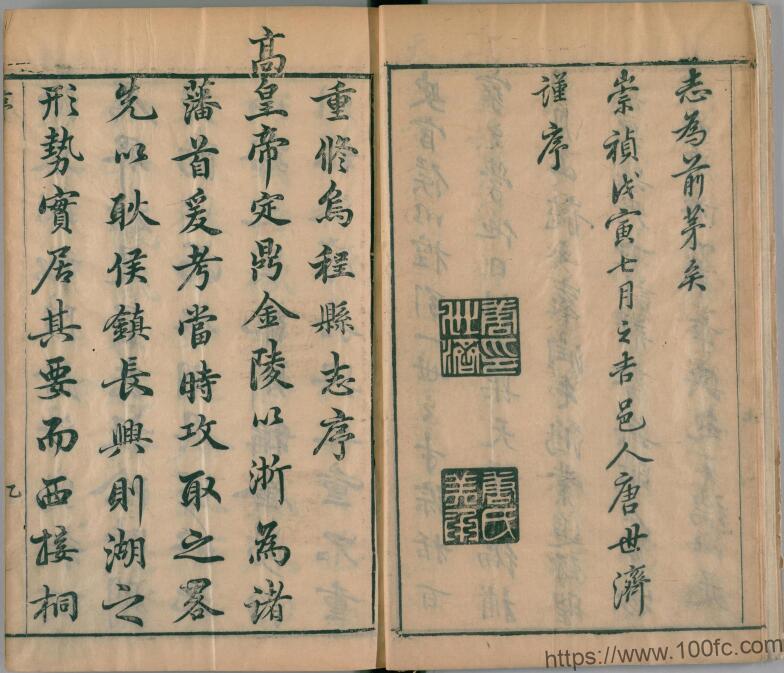 志為前茅矣
崇禎戊寅七月之吉邑人唐世濟
謹序
唐印世濟
唐氏美承
重修烏程縣志序
高皇帝定鼎金陵以浙為諸
藩首爰考當時攻取之畧
先以耿侯鎮長興則湖之
形勢實居其要而西接桐
https://www.100fc.com